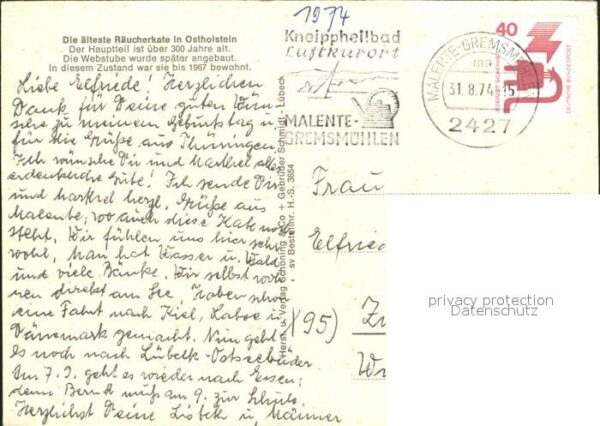 1974
Die älteste Räucherkate in Ostholstein
Der Hauptteil ist über 300 Jahre alt.
Die Webstube wurde später angebaut.
In diesem Zustand war sie bis 1967 bewohnt.
Liebe Elfriede! Herzlichen
Dank für Deine guten Wün-
sche zu meinem Geburtstag u.
für die Grüße aus Thüringen.
Ich wünsche Dir und alles
erdenkliche Gute! Ich sende Dir
und herzl. Grüße aus
Malente, wo auch diese Kate noch
steht. Wir fühlen uns hier sehr
wohl, man hat Wasser u. Wald
und viele Bänke. Wir selbst woh-
nen direkt am See. Haben schon
eine Fahrt nach Kiel, Laboe u.
Dänemark gemacht. Nun geht
es noch nach Lübeck-Ostseebäder.
Am 7.9. geht es wieder nach Essen,
denn Bernd muß am 9. zur Schule.
Herzlichst Deine u. Männer
Herst. u. Verlag Schöning & Co. + Gebrüder Schmidt, Lübeck
Bestellnr. H. S. 3654
Kneippheilbad
Luftkurort
MALENTE-
GREMSMÜHLEN
MALENTE-GREMSMÜHLEN
ma
31.8.74-15
2427
40
DEUTSCHE BUNDESPOST
Frau
Elfried
(95)
privacy protection
Datenschutz